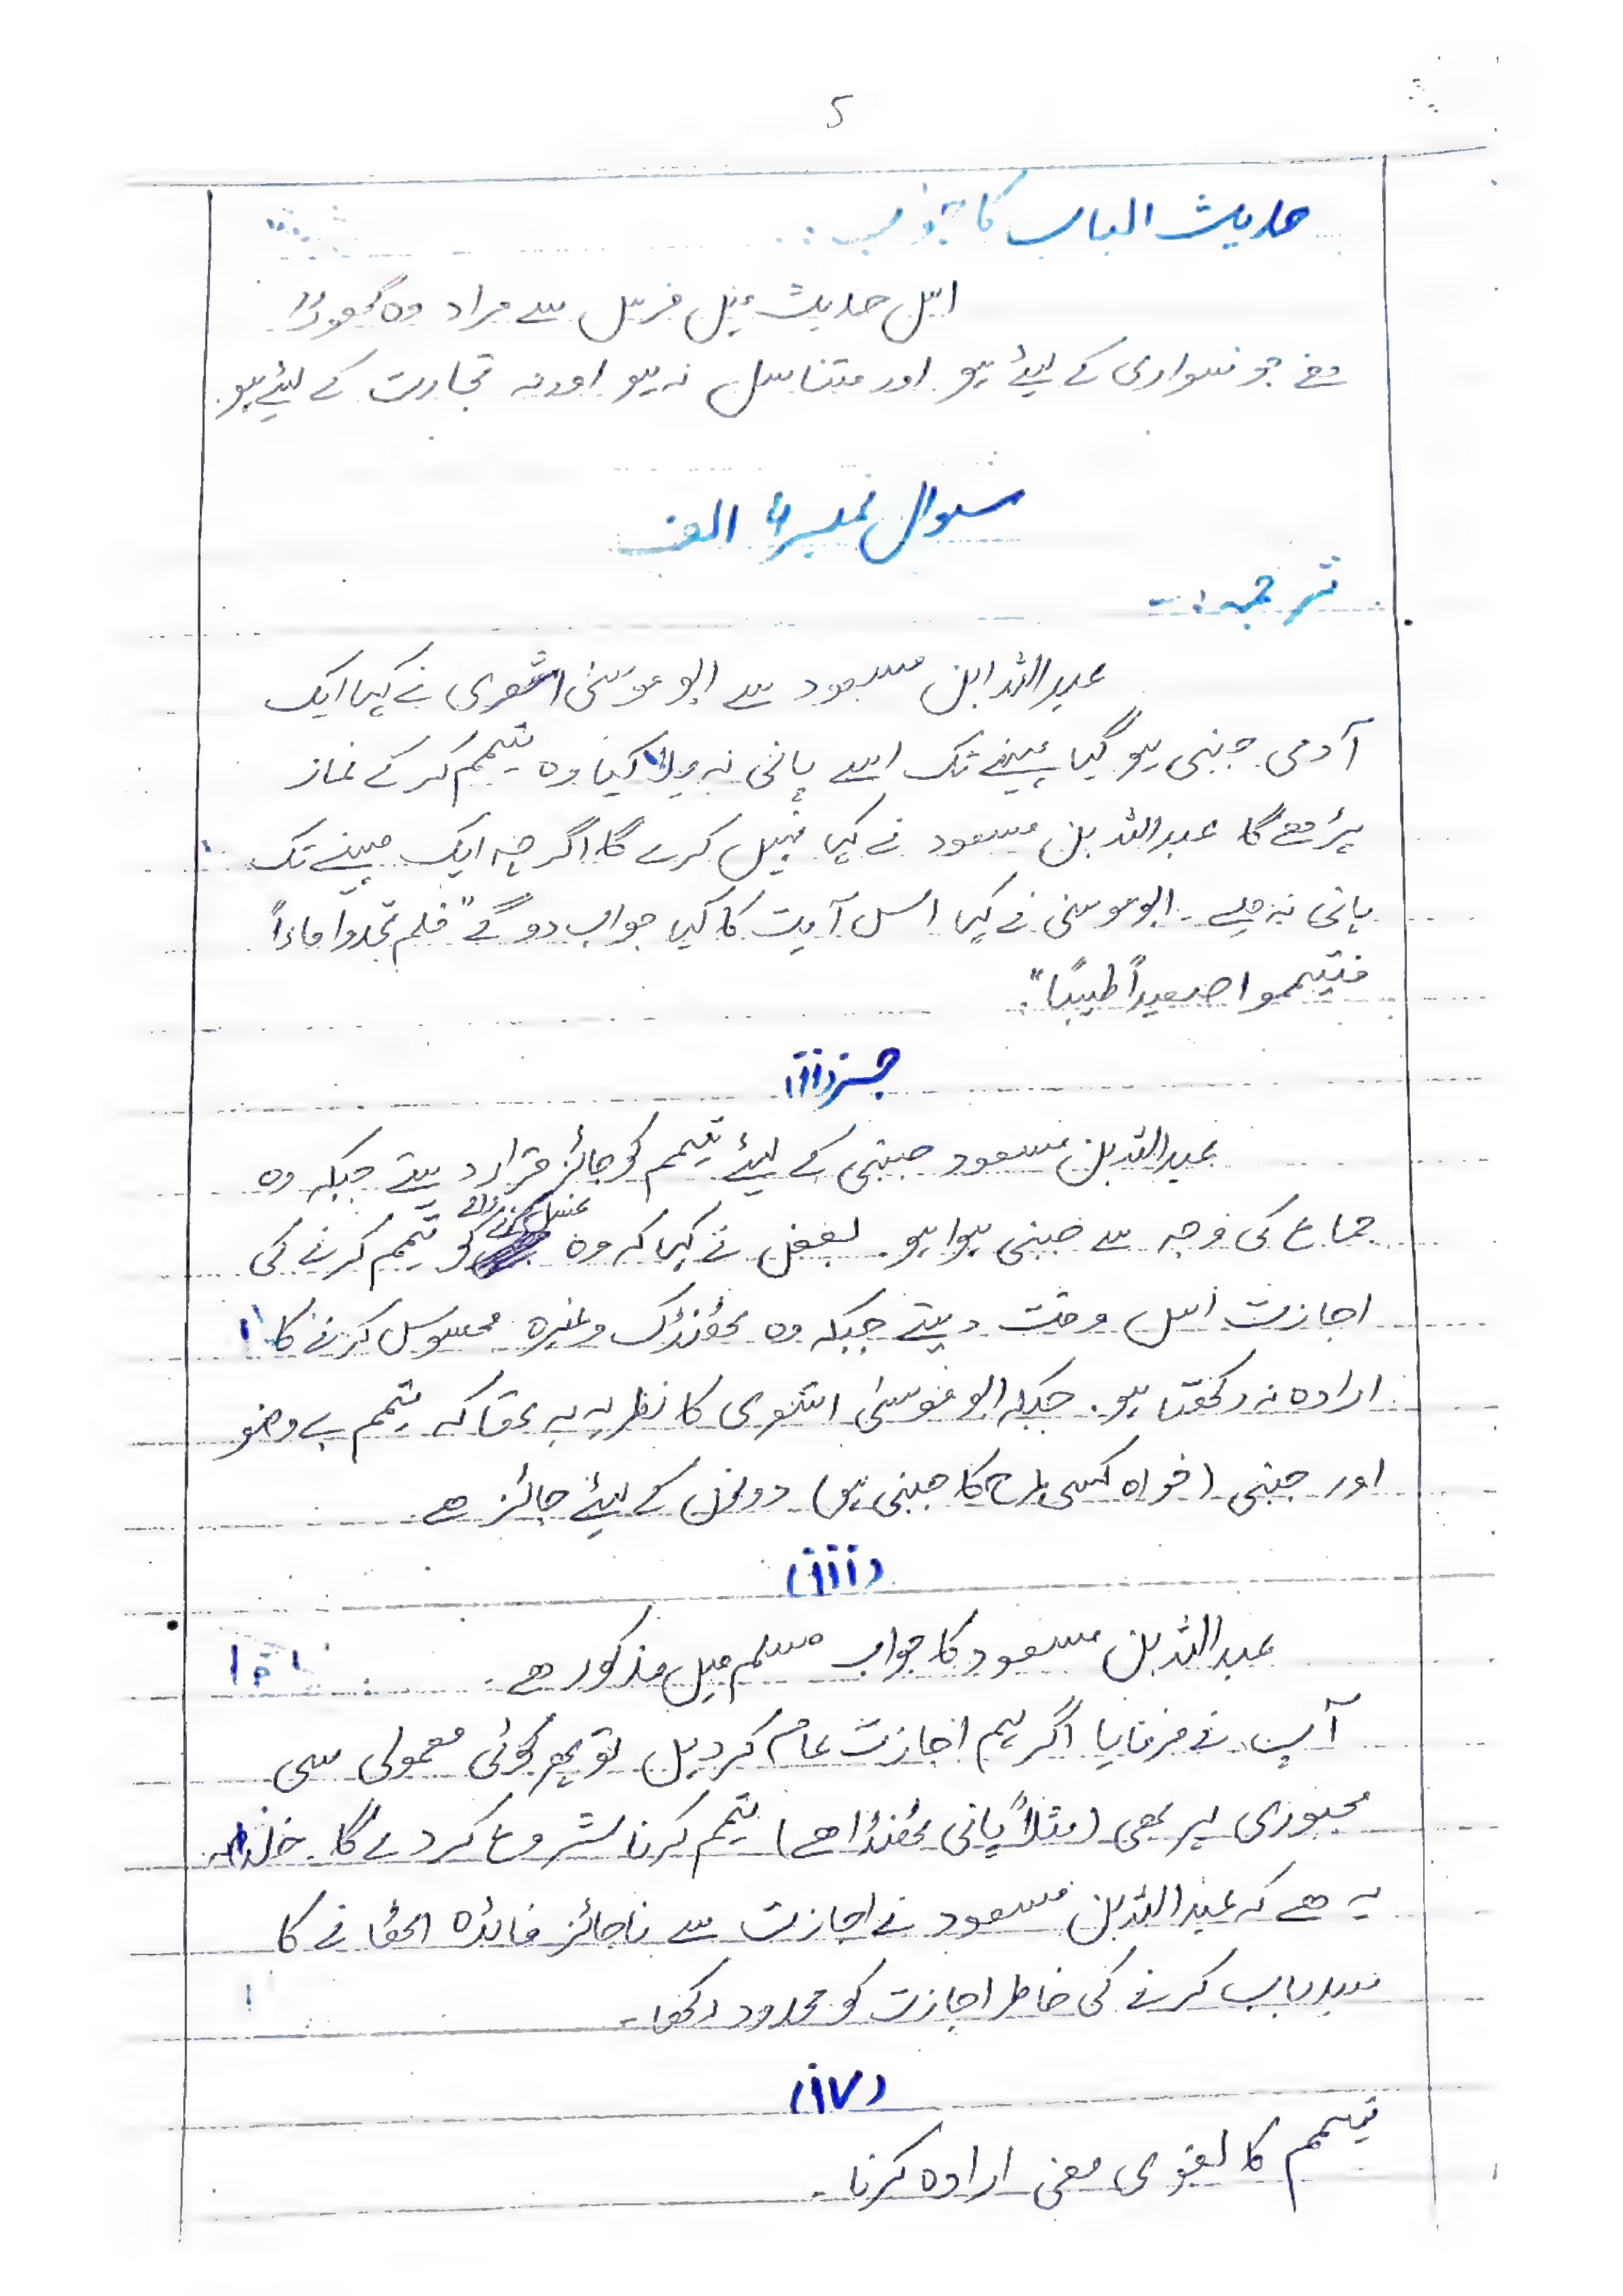 5
حدیث الباب کا جواب :
اس حدیث میں فرس سے مراد وہ گھوڑا
ھے جو سواری کے لیئے ہو اور متناسل نہ ہو اور نہ تجارت کے لیئے ہو۔
سوال نمبر 4 الف
ترجمہ :-
عبداللہ ابن مسعود سے ابو موسیٰ اشعری نے کہا ایک
آدمی جنبی ہو گیا مہینے تک اسے پانی نہ ملا کیا وہ تیمم کر کے نماز
پڑھے گا عبداللہ بن مسعود نے کہا نہیں کرے گا اگرچہ ایک مہینے تک
پانی نہ ملے ۔ ابو موسیٰ نے کہا اس آیت کا کیا جواب دو گے "فلم تجدوا ماءاً
فتیمموا صعیداً طیبًا"۔
جز (ii)
عبداللہ بن مسعود جنبی کے لیئے تیمم کو جائز قرار دیتے جبکہ وہ
جماع کی وجہ سے جنبی ہوا ہو۔ بعض نے کہا کہ وہ غسل کرنے والے کو تیمم کرنے کی
اجازت اس وقت دیتے جبکہ وہ ٹھنڈک وغیرہ محسوس کرنے کا
ارادہ نہ رکھتا ہو۔ جبکہ ابو موسیٰ اشعری کا نظریہ یہ تھا کہ تیمم بے وضو
اور جنبی (خواہ کسی طرح کا جنبی ہو) دونوں کے لیئے جائز ھے۔
(iii)
عبداللہ بن مسعود کا جواب مسلم میں مذکور ھے۔
آپ نے فرمایا اگر ہم اجازت عام کر دیں تو پھر کوئی معمولی سی
مجبوری پر بھی (مثلاً پانی ٹھنڈا ھے) تیمم کرنا شروع کر دے گا۔ خلاصہ
یہ ھے کہ عبداللہ بن مسعود نے اجازت سے ناجائز فائدہ اٹھانے کا
سدباب کرنے کی خاطر اجازت کو محدود رکھا۔
(iv)
تیمم کا لغوی معنی ارادہ کرنا۔